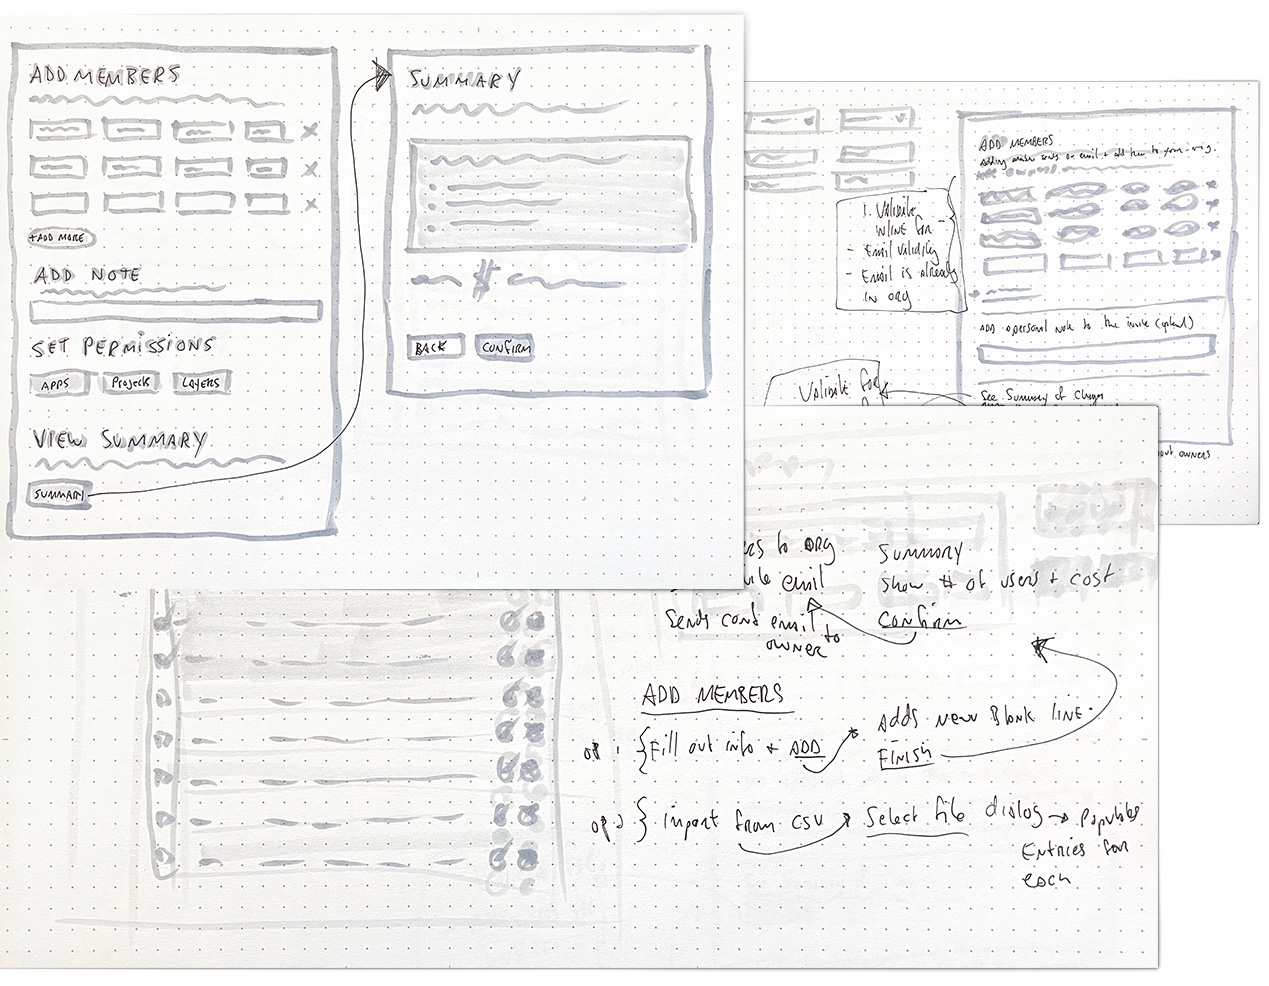 ADD MEMBERS
+ADD MORE
ADD NOTE
SET PERMISSIONS
APPS
Projects
LAYERS
VIEW SUMMARY
SUMMARY
SUMMARY
$
BACK
CONFIRM
1. Validate
INLINE for
- Email validity
- Email is already
IN ORG
Validate for
ADD MEMBERS
ADD a personal note to the invite
See Summary of changes
out owners
to ORG
email
Sends conf email to
OWNER
SUMMARY
Show # of users + cost
Confirm
ADD MEMBERS
op 1 { Fill out info + ADD
Adds new Blank line.
FINISH
op 2 } import from CSV
Select file dialog → Populates
Entries for
each